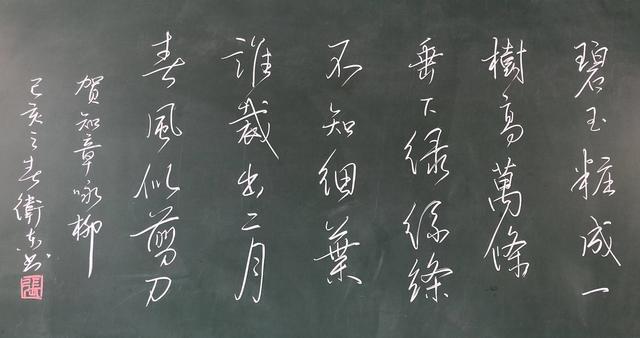 碧玉粧成一
樹高萬條
垂下綠絲絛
不知細葉
誰裁出二月
春風似剪刀
賀知章咏柳
己亥之春衛东书
張